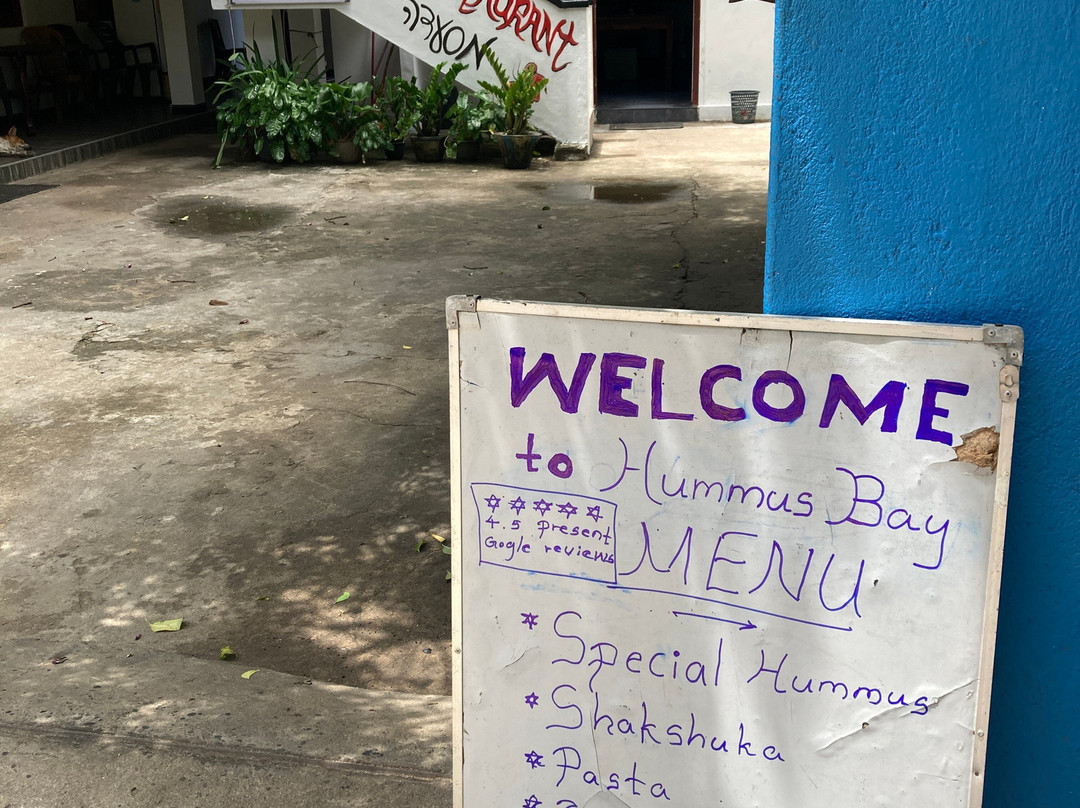 URANT
מסעדה
WELCOME
to Hummus Bay
4.5 Present
Gogle reviews
MENU
Special Hummus
Shakshuka
Pasta